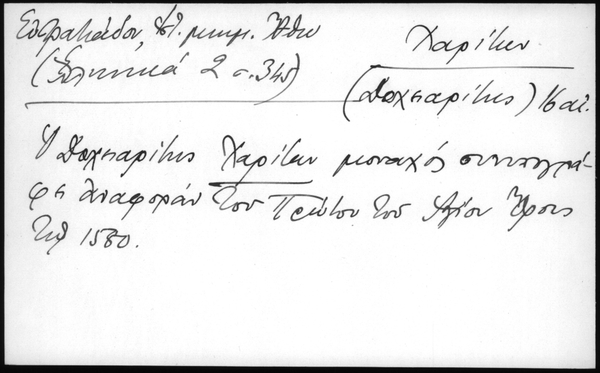 Εὐστρατιάδου, Ἁγ. μνημ. Ἄθω
(Ἑλληνικά 2 σ. 345)
Χαρίτων
(Δοχειαρίτης) 16 αἰ.
Ὁ Δοχειαρίτης Χαρίτων μοναχός συνυπογρά-
φει ἀναφοράν τοῦ Πρώτου τοῦ Ἁγίου Ὄρους
τῷ 1580.